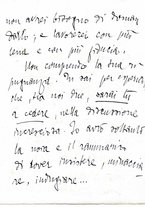 non avrei bisogno di doman
darlo; e lavorerei con più
lena e con più fiducia.
Non comprendo la tua ri
pugnanza. Tu sai per esperienza,
che, fra noi due, sarai tu
a cedere, nella discussione
incresciosa. Io avrò soltanto
la noia e il rammarico
di dover insistere, minaccia
re, indugiare...